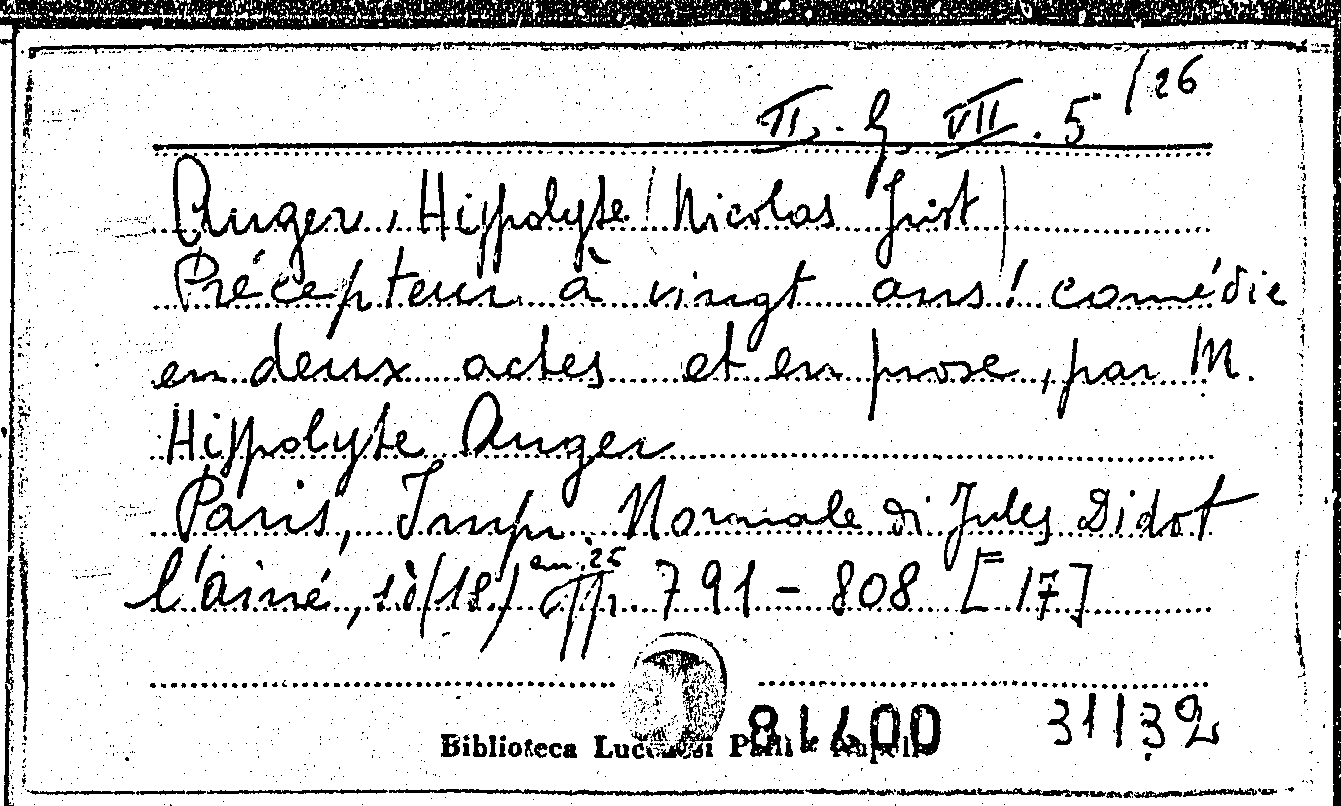 II. G. VII. 5 /26
Auger, Hippolyte (Nicolas Just)
Précepteur à vingt ans! comédie
en deux actes et en prose, par M.
Hippolyte Auger
Paris, Imp. Normale di Jules Didot
l'ainé, pp. 791-808 [17]
31132
Biblioteca Napoli